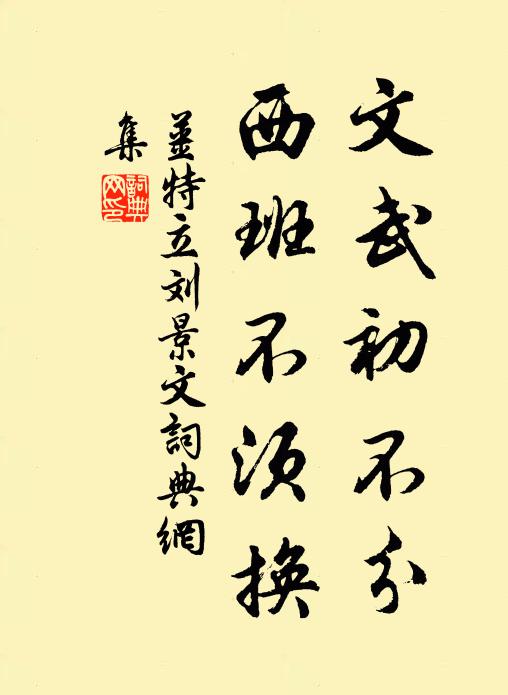 文武初不分
西班不须换
姜特立刘景文詞典網
集
詞典
网印